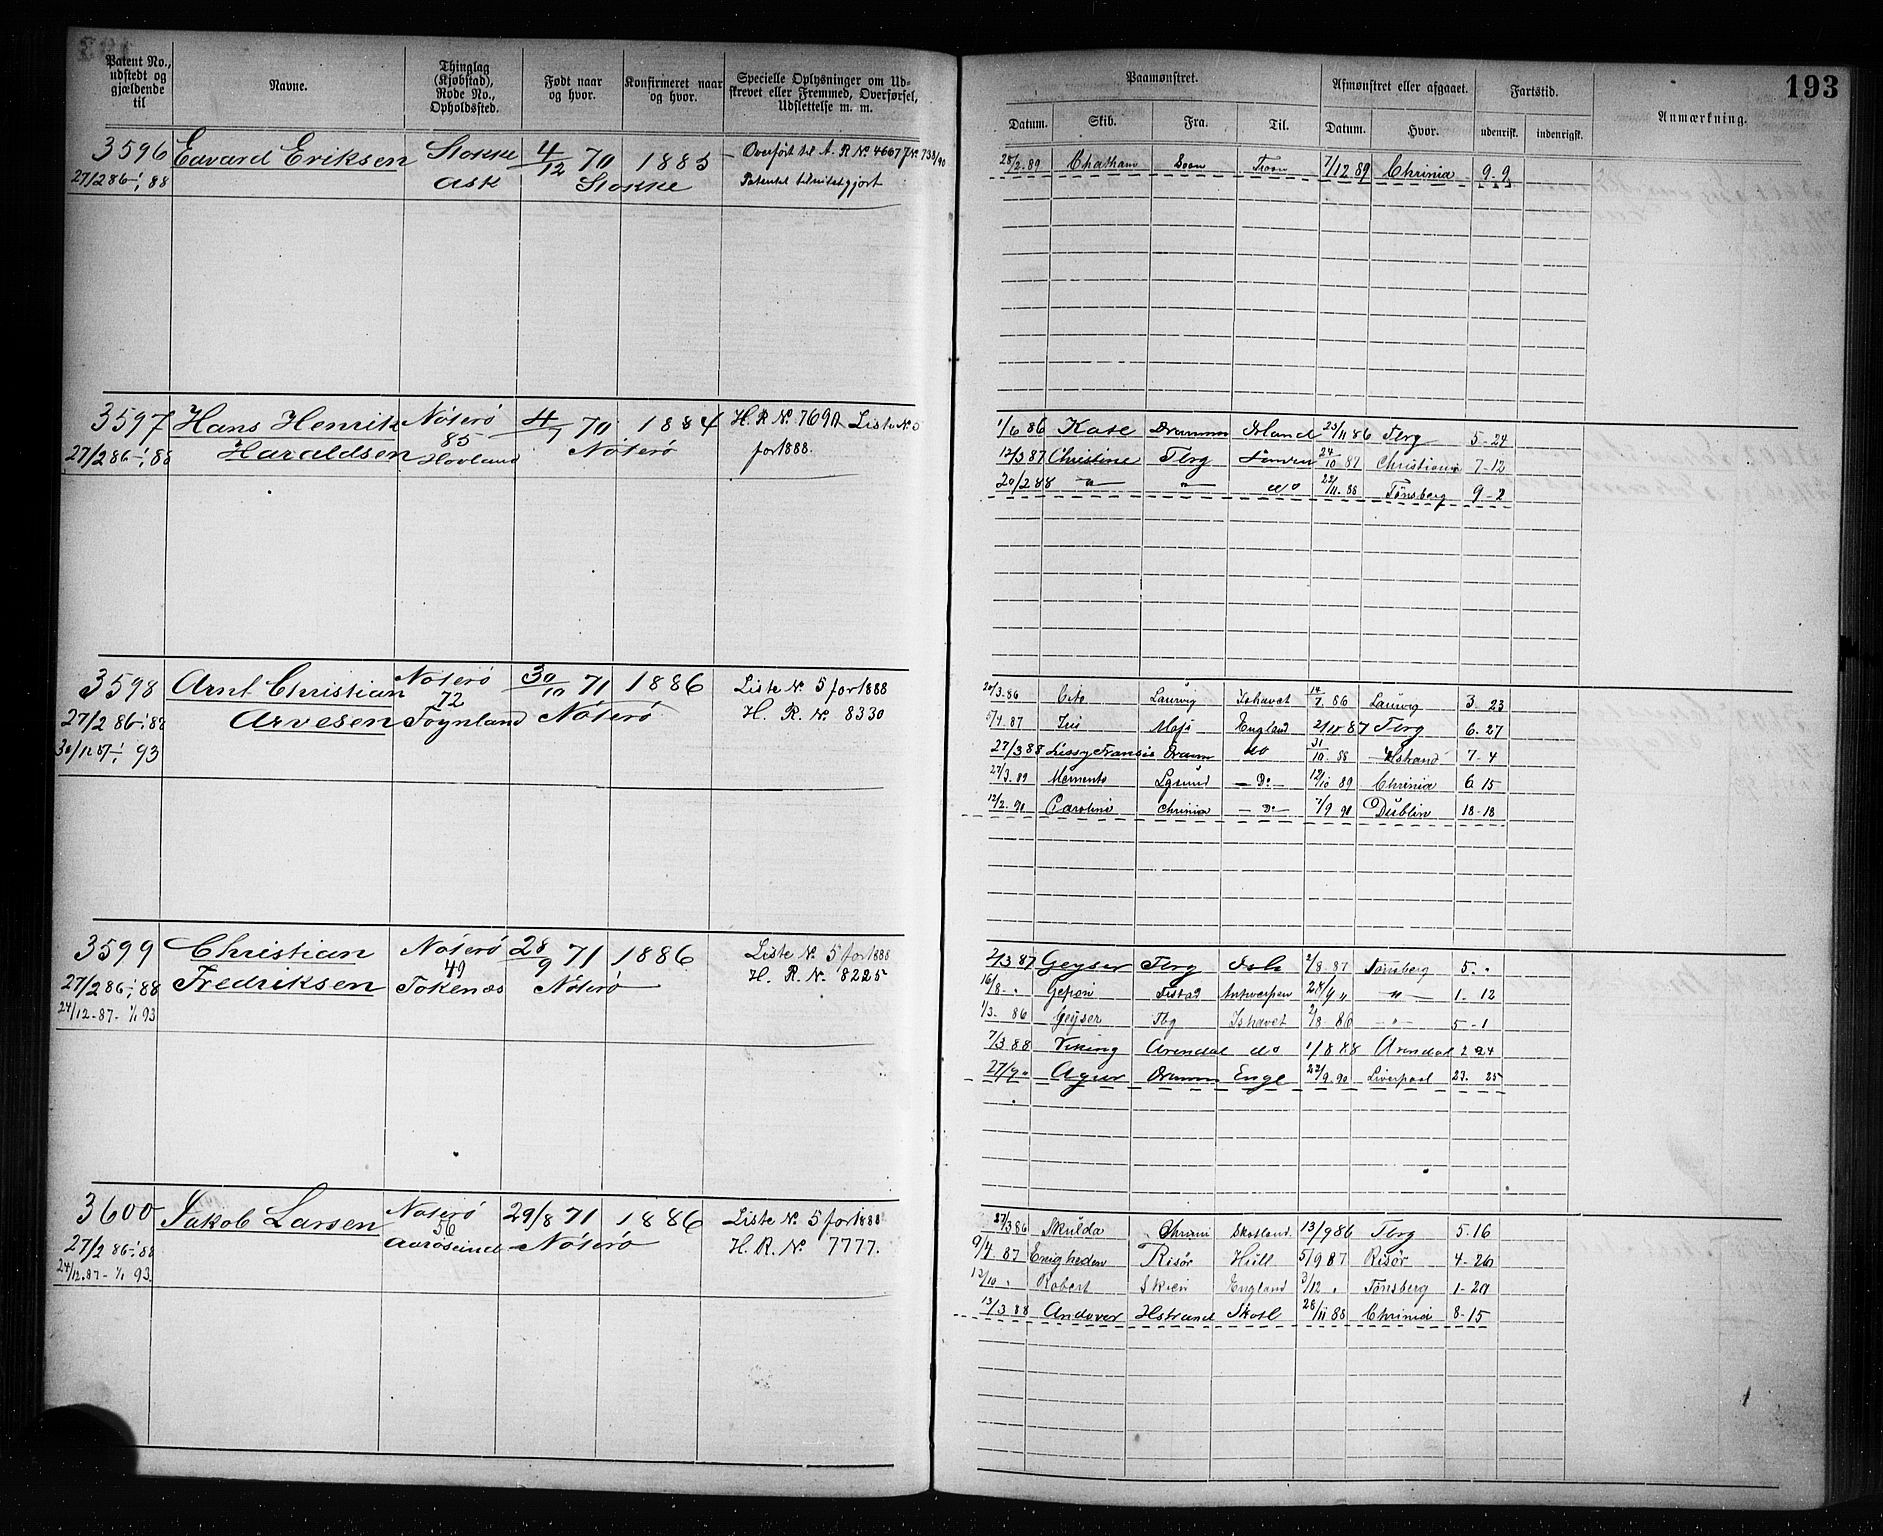 193
Patent No., udstedt og gjældende til
Navne.
Thinglag (Kjøbstad), Rode No., Opholdssted.
Født naar og hvor.
Konfirmeret naar og hvor.
Specielle Oplysninger om Udskrevet eller Fremmed, Overførsel, Udslettelse m. m.
Paamønstret.
Afmønstret eller afgaaet.
Fartstid.
Anmærkning.
Datum. Skib. Fra. Til. Datum. Hvor. udenrigsk. indenrigsk.
3596 Edvard Eriksen Stokke 4/12 70 1885 Overført til A. R No. 4667
27/2 86 - 1/1 88 Ask Stokke
28/2 89 Chatham 7/12 89 Chrinia 9-9
3597 Hans Henrik Nøterø 4/7 70 1884 H. R. No. 7697 Liste No. 5
27/2 86 - 1/1 88 Haraldsen 85 Hovland Nøterø for 1888.
1/6 86 Kate Drammn Island 23/11 86 Tbrg 5-24
12/3 87 Christine Tbrg 24/10 87 Christiania 7-12
20/2 88 -"- -"- do 22/11 88 Tønsberg 9-2
3598 Arnt Christian Nøterø 30/10 71 1886 Liste No. 5 for 1888
72
27/2 86 - 1/1 88 Arvesen Toynland Nøterø H. R. No. 8330
30/12 87 - 1/1 93
20/3 86 Cito Laurvig Ishavet 14/7 86 Laurvig 3. 23
87 Iris England 2/10 87 Tbrg 6. 27
27/3 88 Lissy Francis Dramm do 31/10 88 Hstrand 7-4
27/3. 89 Memento - Do - 12/10 89 Chrinia 6 15
12/2. 90 Carolina Chrinia - Do - 7/9 90 Dublin 18-18
3599 Christian Nøterø 28/9 71 1886 Liste No. 5 for 1888
27/2 86 - 1/1 88 Fredriksen 49 Tokenæs Nøterø H. R. No. 8225
24/12-87 - 1/1 93
2/3 87 Geyser Tbrg Ish 2/8 87 Tønsberg 5. "
16/8 - " Antwerpen 24/9 " -"- 1- 12
1/3. 86 Geyser Tbg Ishavet 2/8 86 -"- 5-1
7/3 88 Viking Arendal do 1/8 88 Arendal 24
Agur Dramm Engl 22/9. 90 Liverpool 23. 25
3600 Jakob Larsen Nøterø 29/8 71 1886 Liste No. 5 for 1888
56
27/2 86 - 1/1 88 Aarøsund Nøterø H. R. No. 7777.
24/12. 87 - 1/1 93.
27/3 86 Skulda Chrini Skotland 13/9 86 Tbrg 5. 16
9/4. 87 Enigheden Risør Hull 5/9 87 Risør 4-26
13/10 " Robert Skien England 3/12 " Tønsberg 1-20
13/3 88 Andover Hstrand Skotl 28/11 88 Chrinia 8-15